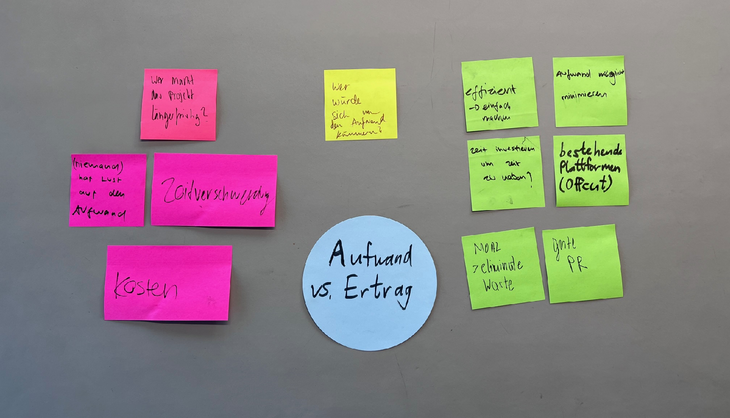 Wer macht
das Projekt
längerfristig?
(niemand)
hat Lust
auf den
Aufwand
Zeitverschwendung
Kosten
wer
würde
sich um
den Aufwand
kümmern?
Aufwand
vs. Ertrag
effizient
→ einfach
machen
Aufwand möglichst
minimieren
zeit investieren
um zeit
zu haben?
bestehende
Plattformen
(Offcut)
MOAZ
>eliminate
Waste
gute
PR